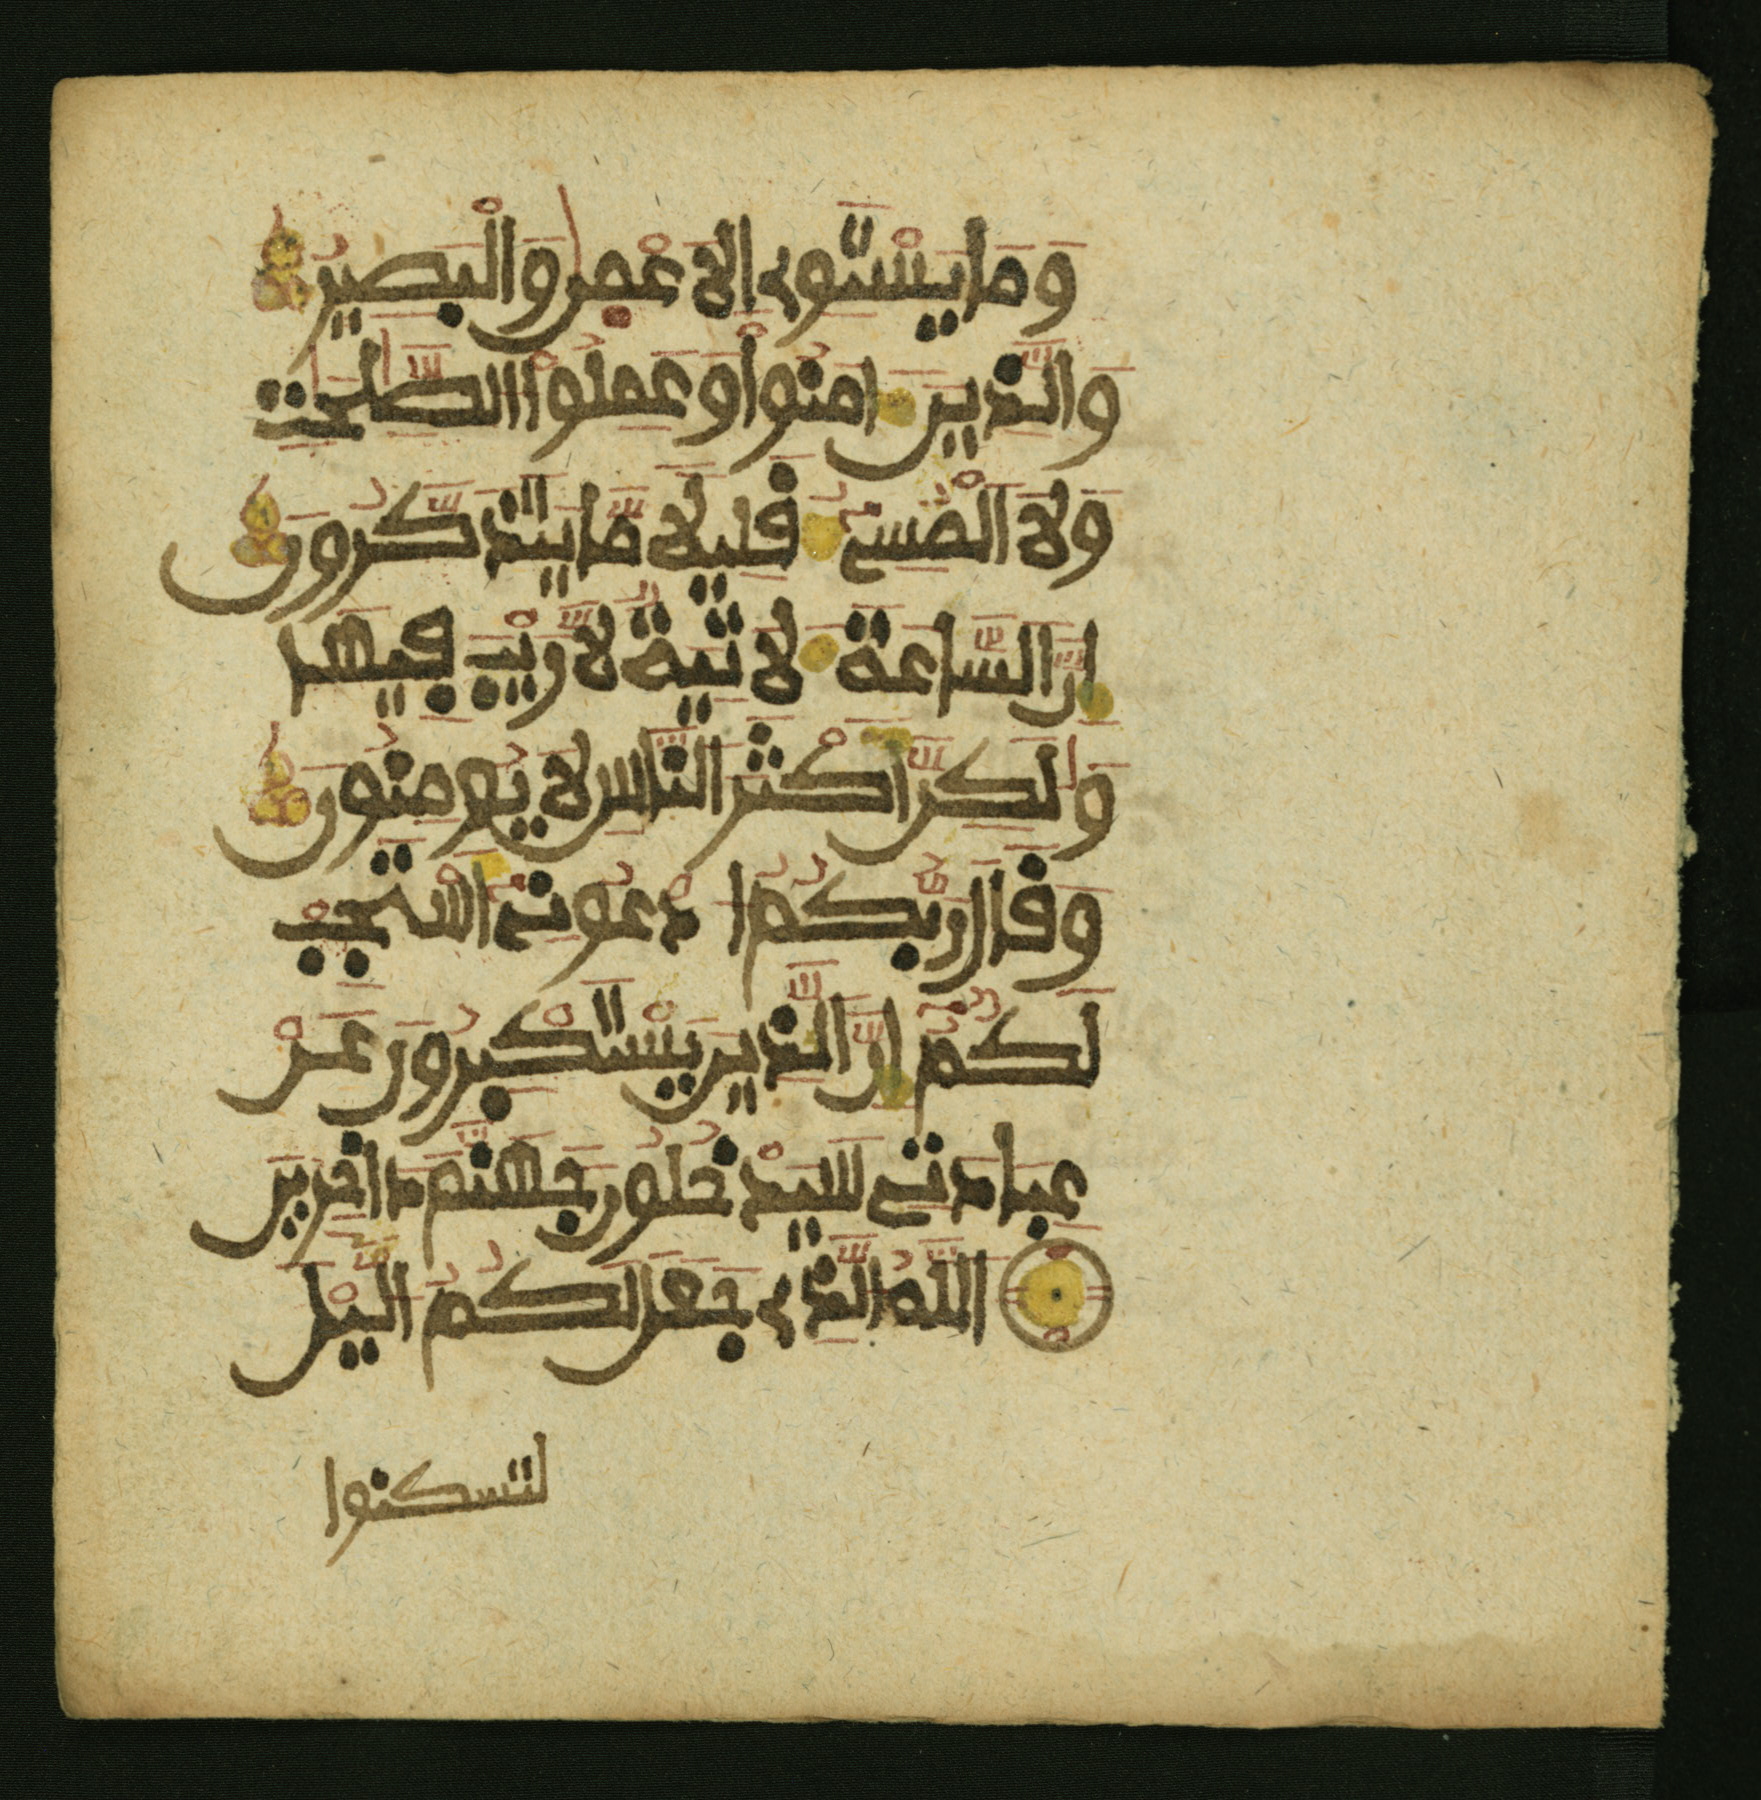 وَمَا يَسْتَوِے اَ۬لَاعْمٜىٰ وَالْبَصِيرُ
وَالَّذِينَ ءَامَنُواْ وَعَمِلُواْ اُ۬لصَّٰلِحَٰتِ
وَلَا اَ۬لْمُسِےٓءُ قَلِيلاً مَّا يَتَذَكَّرُونَ
إِنَّ اَ۬لسَّاعَةَ لَأتِيَةٌ لَّا رَيْبَ فِيهَا
وَلَٰكِنَّ أَكْثَرَ اَ۬لنَّاسِ لَا يُومِنُونَ
وَقَالَ رَبُّكُمُ ا۟دْعُونِےٓ أَسْتَجِبْ
لَكُمُۥٓ إِنَّ اَ۬لذِينَ يَسْتَكْبِرُونَ عَنْ
عِبَادَتِے سَيَدْخُلُونَ جَهَنَّمَ دَاخِرِينَ
اَ۬للَّهُ اُ۬لذِے جَعَلَ لَكُمُ اُ۬ليْلَ
لتسكنوا